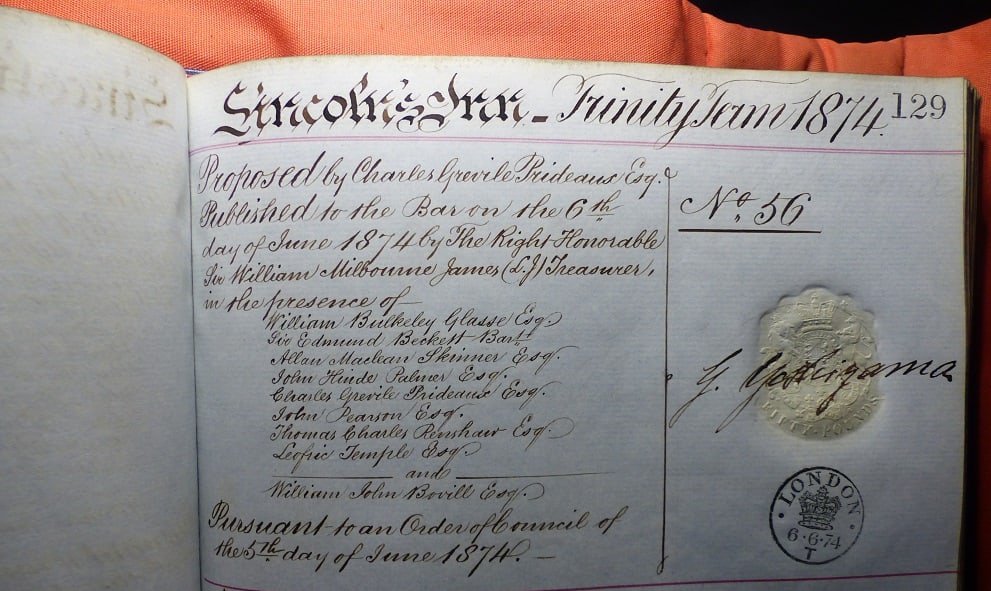 Lincoln's Inn – Trinity Term 1874.
129
Proposed by Charles Grevile Prideaux Esq.
Published to the Bar on the 6th
day of June 1874 by The Right Honorable
Sir William Milbourne James (L.J) Treasurer,
in the presence of
William Bulkeley Glasse Esq.
Sir Edmund Beckett Bart.
Allan Maclean Skinner Esq.
John Hinde Palmer Esq.
Charles Grevile Prideaux Esq.
John Pearson Esq.
Thomas Charles Renshaw Esq.
Leofric Temple Esq.
and
William John Bovill Esq.
Pursuant to an Order of Council of
the 5th day of June 1874. –
No. 56
FIFTY POUNDS
LONDON
6·6·74
T